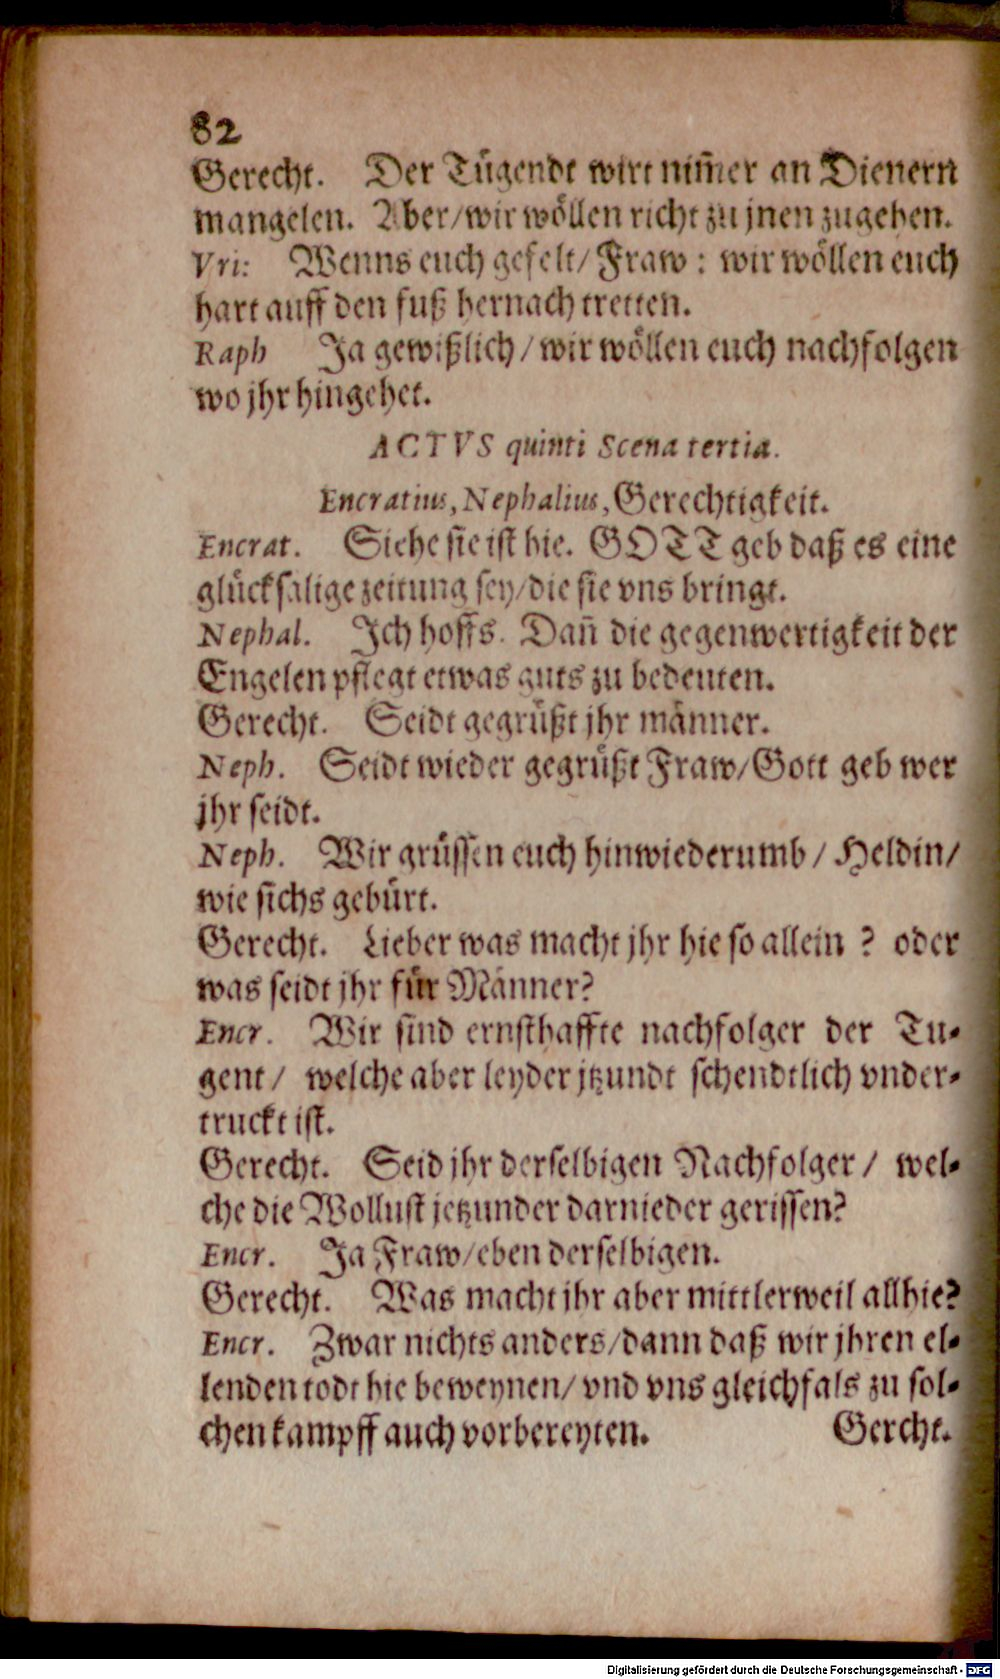 82
Gerecht. Der Tügendt wirt nim̄er an Dienern
mangelen. Aber/wir wöllen richt zu jnen zugehen.
Vri: Wenns euch gefelt/ Fraw : wir wöllen euch
hart auff den fuß hernach tretten.
Raph Ja gewißlich/ wir wöllen euch nachfolgen
wo jhr hingehet.
ACTVS quinti Scena tertia.
Encratius, Nephalius, Gerechtigkeit.
Encrat. Siehe sie ist hie. GOTT geb daß es eine
glücksalige zeitung sey/die sie vns bringt.
Nephal. Ich hoffs. Dañ die gegenwertigkeit der
Engelen pflegt etwas guts zu bedeuten.
Gerecht. Seidt gegrüßt jhr männer.
Neph. Seidt wieder gegrüßt Fraw/Gott geb wer
jhr seidt.
Neph. Wir grüssen euch hinwiederumb / Heldin/
wie sichs gebürt.
Gerecht. Lieber was macht jhr hie so allein ? oder
was seidt jhr für Männer?
Encr. Wir sind ernsthaffte nachfolger der Tu-
gent/ welche aber leyder jtzundt schendtlich vnder-
truckt ist.
Gerecht. Seid jhr derselbigen Nachfolger / wel-
che die Wollust jetzunder darnieder gerissen?
Encr. Ja Fraw/eben derselbigen.
Gerecht. Was macht jhr aber mittlerweil allhie?
Encr. Zwar nichts anders/dann daß wir jhren el-
lenden todt hie beweynen/ vnd vns gleichfals zu sol-
chen kampff auch vorbereyten. Gercht.
Digitalisierung gefördert durch die Deutsche Forschungsgemeinschaft - DFG